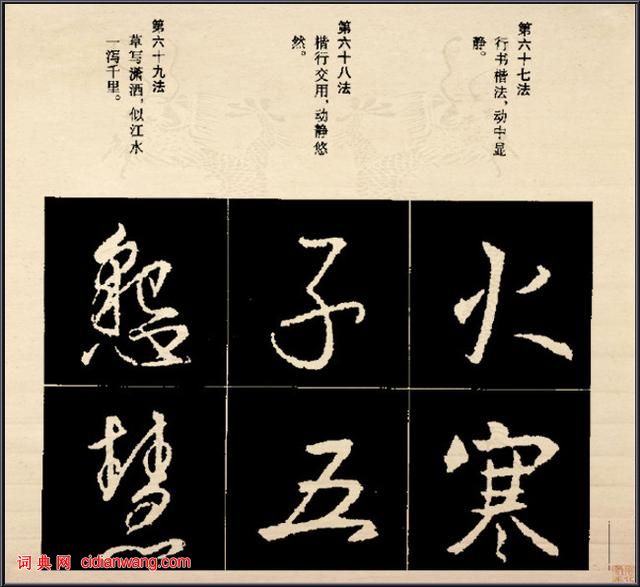 第六十七法
行书楷法，动中显
静。
第六十八法
楷行交用，动静悠
然。
第六十九法
草写潇洒，似江水
一泻千里。
火寒
子五
懇慧
词典网 cidianwang.com